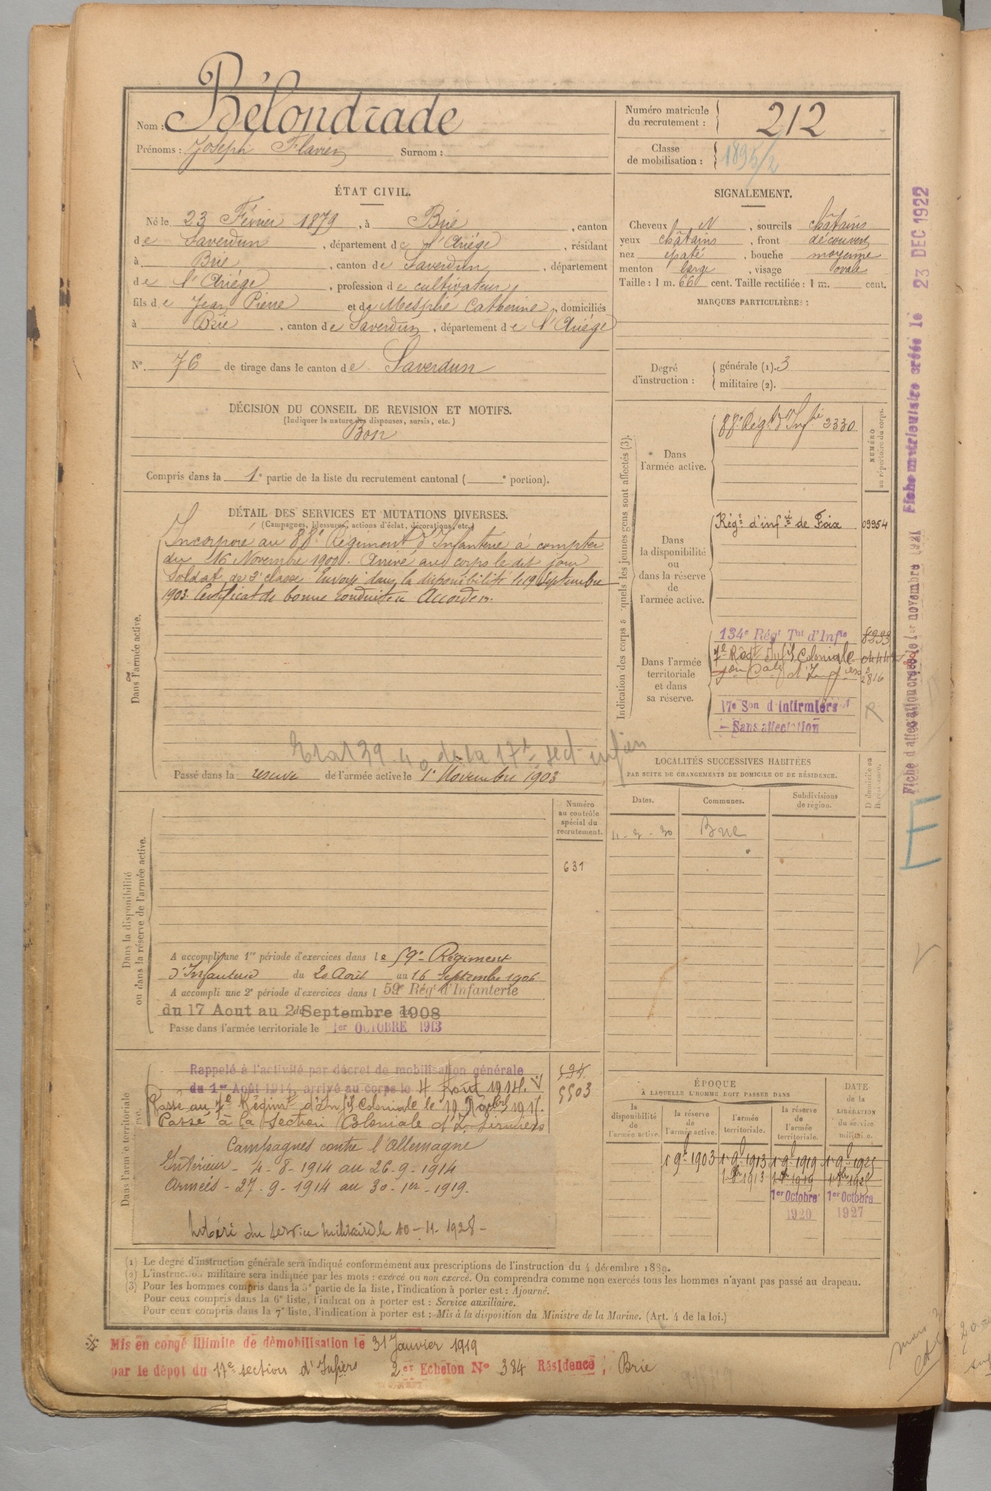 Nom : Bélondrade
Prénoms : Joseph Flavien Surnom :
Numéro matricule
du recrutement : 212
Classe
de mobilisation : 1895/2
ÉTAT CIVIL.
Né le 23 Février 1879, à Brie, canton
de Saverdun, département de l'Ariège, résidant
à Brie, canton de Saverdun, département
de l'Ariège, profession de cultivateur,
fils de Jean Pierre et de Mesplié Catherine, domiciliés
à Brie, canton de Saverdun, département de l'Ariège
N° 76 de tirage dans le canton de Saverdun
SIGNALEMENT.
Cheveux N, sourcils châtains
yeux châtains, front découvert
nez épaté, bouche moyenne
menton large, visage ovale
Taille : 1 m. 660 cent. Taille rectifiée : 1 m. cent.
MARQUES PARTICULIÈRES :
Degré
d'instruction :
générale (1). 3
militaire (2).
DÉCISION DU CONSEIL DE REVISION ET MOTIFS.
(Indiquer la nature des dispenses, sursis, etc.)
Bon
Compris dans la 1e partie de la liste du recrutement cantonal ( e portion).
DÉTAIL DES SERVICES ET MUTATIONS DIVERSES.
(Campagnes, blessures, actions d'éclat, décorations, etc.)
Dans l'armée active.
Incorporé au 88e Régiment d'Infanterie à compter
du 16 Novembre 1900. Arrivé au corps le dit jour
Soldat de 2e classe. Envoyé dans la disponibilité le 19 Septembre
1903. Certificat de bonne conduite Accordé.
de la 17e sect infien
Passé dans la réserve de l'armée active le 1er Novembre 1903
Indication des corps auxquels les jeunes gens sont affectés (3).
NUMÉRO
au répertoire du corps.
Dans
l'armée active.
88e Régt d'Infie 3330
Dans
la disponibilité
ou
dans la réserve
de
l'armée active.
Régt d'infie de Foix 09954
Dans l'armée
territoriale
et dans
sa réserve.
134e Régt Tal d'Infie
7e Régt Inf Coloniale
17e Son d'infirmiers
- Sans affectation
LOCALITÉS SUCCESSIVES HABITÉES
PAR SUITE DE CHANGEMENTS DE DOMICILE OU DE RÉSIDENCE.
Dates. Communes. Subdivisions
de région.
Brie
Numéro
au contrôle
spécial du
recrutement.
631
Dans la disponibilité
ou dans la réserve de l'armée active.
A accompli une 1re période d'exercices dans le 59e Régiment
d'Infanterie du 20 Août au 16 Septembre 1906
A accompli une 2e période d'exercices dans l 59e Régt d'Infanterie
du 17 Aout au Septembre 1908
Passé dans l'armée territoriale le 1er OCTOBRE 1913
Dans l'armée territoriale
Rappelé à l'activité par décret de mobilisation générale
du 1er Août 1914, arrivé au corps le 4 Août 1914.
Passé au 7e Régiment d'Inf Coloniale le
Passé à la Section Coloniale d'Infirmiers
5503
Campagnes contre l'Allemagne
Intérieur - 4-8-1914 au 26-9-1914
Armées - 27-9-1914 au 30-1er-1919.
Libéré du service militaire le 10-11-1928-
ÉPOQUE
À LAQUELLE L'HOMME DOIT PASSER DANS
la disponibilité de l'armée active.
la réserve de l'armée active.
l'armée territoriale.
la réserve de l'armée territoriale.
DATE DE LA LIBÉRATION du service militaire.
1 9bre 1903 1 9bre 1913 1 9bre 1919 1 9bre 1925
1er Octobre 1er Octobre
1920 1927
(1) Le degré d'instruction générale sera indiqué conformément aux prescriptions de l'instruction du 4 décembre 1889.
(2) L'instruction militaire sera indiquée par les mots : exercé ou non exercé. On comprendra comme non exercés tous les hommes n'ayant pas passé au drapeau.
(3) Pour les hommes compris dans la 5e partie de la liste, l'indication à porter est : Ajourné.
Pour ceux compris dans la 6e liste, l'indication à porter est : Service auxiliaire.
Pour ceux compris dans la 7e liste, l'indication à porter est : Mis à la disposition du Ministre de la Marine. (Art. 4 de la loi.)
Mis en congé illimité de démobilisation le 31 Janvier 1919
par le dépôt du 17e section d'Infiers 2e Echelon N° 384 Résidence : Brie
Fiche d'affectation créée le 1er novembre 1921 Fiche matriculaire créée le 23 DEC 1922